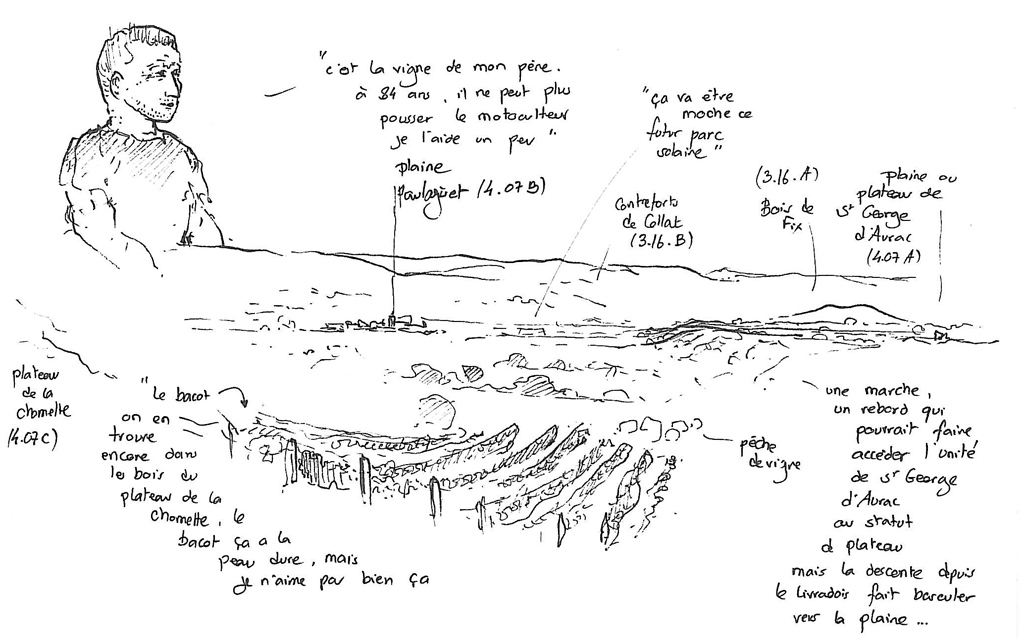 "c'est la vigne de mon père.
à 84 ans, il ne peut plus
pousser le motoculteur
je l'aide un peu"
plaine
Paulaguet (4.07 B)
"ça va être
moche ce
futur parc
solaire"
Contreforts
de Collat
(3.16.B)
(3.16.A)
Bois de
Fix
plaine ou
plateau de
St George
d'Aurac
(4.07 A)
plateau
de la
chomette
(4.07 C)
"le bacot
on en
trouve
encore dans
les bois du
plateau de la
chomette, le
bacot ça a la
peau dure, mais
je n'aime pas bien ça
pêche
de vigne
une marche,
un rebord qui
pourrait faire
accéder l'unité
de St George
d'Aurac
au statut
de plateau
mais la descente depuis
le Livradois fait basculer
vers la plaine ...